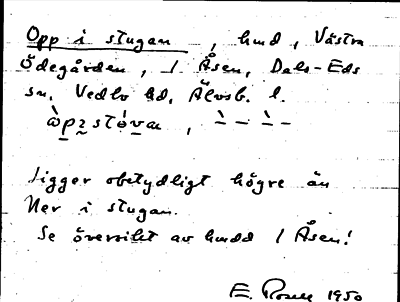 Opp i stugan, hmd, Västra
Ödegården, 1 Åsen, Dals-Eds
sn, Vedbo hd, Älvsb. l.
Ligger obetydligt högre än
Ner i stugan.
Se översikt av hmdd 1 Åsen!
E. Rosell 1950